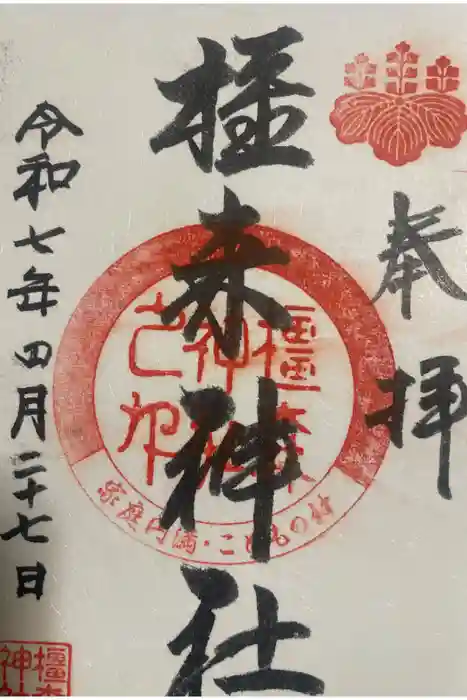 奉拝
橿森神社
橿森
神社
之印
家庭円満・こどもの神
令和七年四月二十七日
橿森
神社